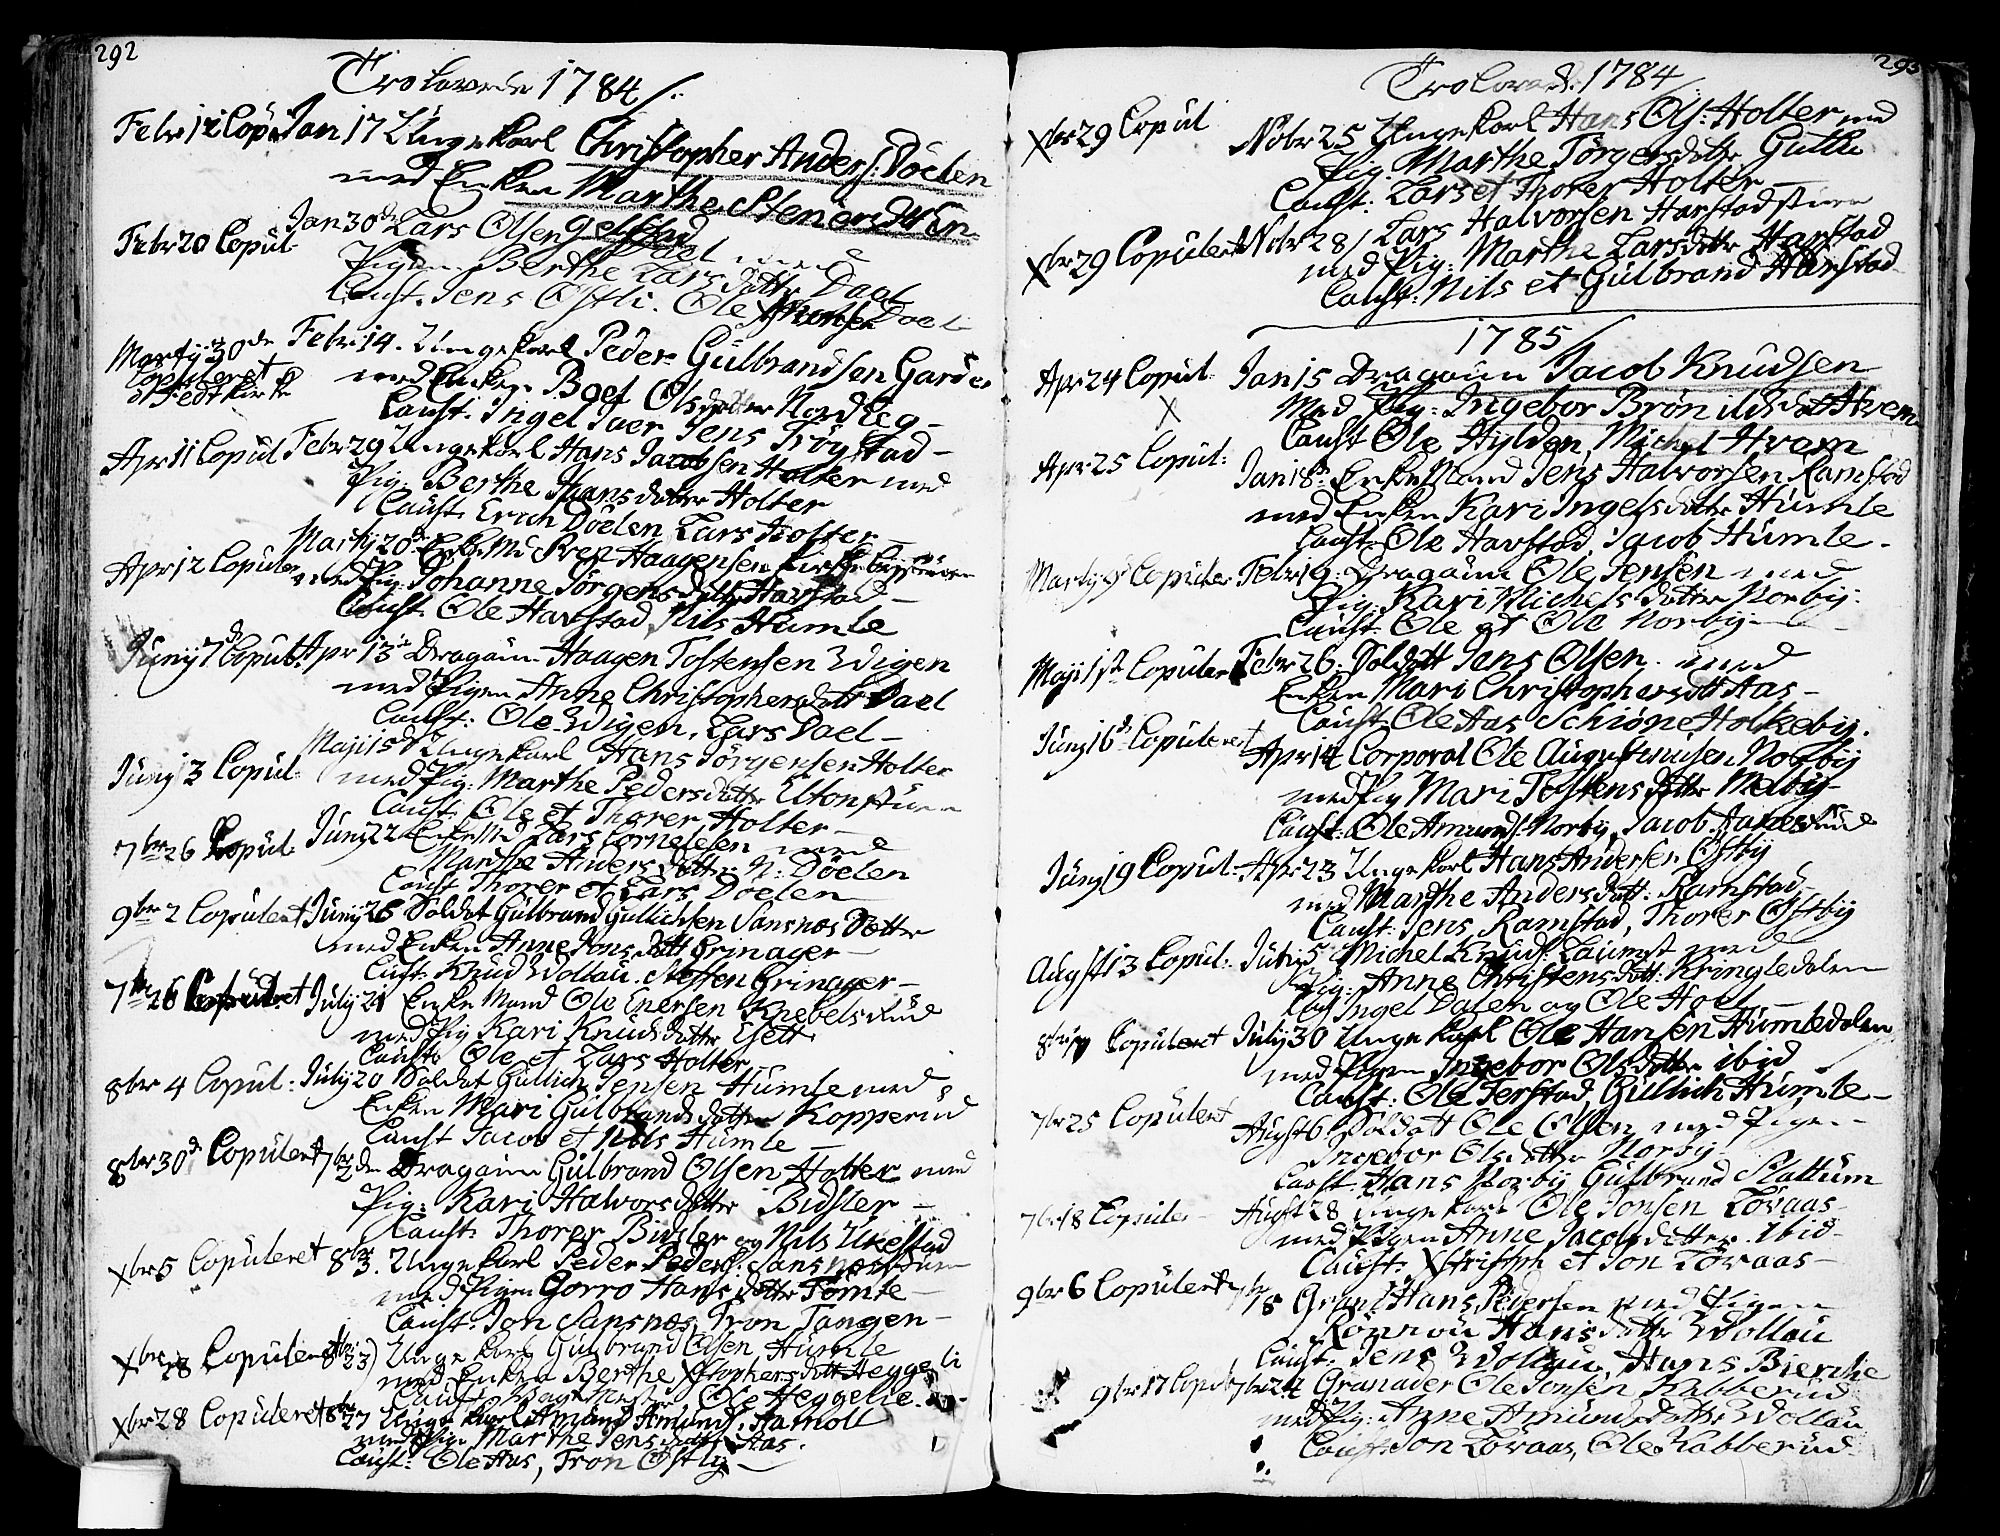 292
Trolovede 1784/.
Febr 12 Copul Jan 17 Unge karl Christopher Anders: Döelen
med Enken Marthe Stenersdttr
Febr 20 Copul Jan 30 Lars Olsen Dael med
Pigen Berthe Larsdatter Dael
Caust. Jens Östli. Ole Dael
Martij 30de Febr 14. Unge karl Peder Gulbrandsen Garder
Copuleret med Enken Boel Olsdatter Nordbÿe
Caust. Ingel Jaer Jens Frögstad
Apr 11 Copul Febr 29 Unge karl Hans Jacobsen Holter med
Pig: Berthe Hansdatter Holter
Caust. Erich Döelen Lars Holter
Apr 12 Copuler Martij 20 Enke M: Sven Haagensen
med Pig. Johanne Jörgensdattr Harstad
Caust. Ole Harstad Nils Humle
Junij 7d Copul: Apr 13 Dragaun Haagen Tostensen Wigen
med Pigen Anne Christophersdatt Dael
Caust: Ole Wigen, Lars Dael
Junij 3 Copul: Maji 15d Unge karl Hans Jörgensen Holter
med Pig: Marthe Pedersdatter
Caust: Ole et Thorer Holter
7br 26 Copul Junij 22 Enke Md Lars Cornelisen med
Marthe Andersdatter N: Döelen
Caust Thorer et Lars Döelen
9br 2 Copuleret Junij 26 Soldat Gulbrand Gullichsen Sansnos
med Enken Anne Jonsdatt Grinager
Caust: Knud Wollau. Steffen Grinager
7br 26 Copuleret Julij 21 Enke Mand Ole Enersen Knebelsrud
med Pig Kari Knudsdatter
Caust: Ole et Lars Holter
8br 4 Copul: Julij 20 Soldat Gullich Jensen Humle med
Enken Mari Gulbrandsdatter Kopperud
Caust Jacob et Nils Humle
8br 30d Copuleret 7br 2den Dragaun Gulbrand Olsen Holter med
Pig: Kari Halvorsdatter Bidsler
Caust: Thorer Bidsler og Nils Ukestad
Xbr 5 Copuleret 8br 3. Unge karl Peder Peders:
med Pigen Gorro Hansdatter Tomte
Caust: Jon Sansnæs, Tron Tangen
Xbr 28 Copuleret 8br 23) Unge karl Gulbrand Olsen Humle
med Enken Berthe Xstophersdatt Heggeli
Caust: Ole Heggelie
Xbr 28 Copuleret 8br 27 Unge karl Amund Amunds:
med Pige Marthe Jensdatt Aas.
Caust: Ole Aas, Tron Östbÿ
Trolovede: 1784/.
Xbr 29 Copul Nobr 25 Unge karl Hans Ols: Holter med
Pig: Marthe Jörgensdatter
Caust: Lars et Thorer Holter
Xbr 29 Copuleret Nobr 28 Lars Halvorsen Harstad
med Pig: Marthe Larsdatter Harstad
Caust: Nils et Gulbrand Harstad
1785/
Apr 24 Copul: Jan 15 Dragaun Jacob Knudsen
X Med Pig: Ingebor Brönildsdatt Hvam
Caust Ole Hylden, Michel Hvam
Apr 25 Copul: Jan 18 Enke Mand Jens Halvorsen Ramstad
med Enken Kari Ingelsdatter Humle
Caust: Ole Harstad, Jacob Humle
Martij Copuler Febr 19 Dragaun Ole Jensen med
Pig: Kari Michelsdatter Norbÿ
Caust: Ole et Ole Norbÿ
Maji 1ste Copulere Febr 26: Soldatt Jens Olsen med
Enken Mari Christophersdatt Aas
Caust: Ole Aas Schiöne Holkebÿ.
Junij 16d Copuleret Apr 14 Corporal Ole Augustinusen Norbÿ
med Pig Mari Tostensdatter Melbÿ
Caust: Ole Amunds: Norbÿ, Jacob
Junij 19 Copul: Apr 23 Unge karl Hans Andersen Östbÿ
med Marthe Andersdatt: Ramstad
Caust: Jens Ramstad, Thorer Östbÿ
August 13 Copul: Julij 5 Michel Knuds: med
Pig: Anne Christensdatt: Kringledalen
Caust Ingel Dalen og Ole Hoel
Copuleret Julij 30 Unge karl Ole Hansen Humledalen
med Pigen Ingebor Olsdatter ibid
Caust: Ole Ferstad, Gullich Humle
7br 25 Copuleret August 6 Soldatt Ole Olsen med Pigen
Ingebor Olsdatter Norbÿ
Caust: Hans Norbÿ Gulbrand Slattum
7br 18 Copuler August 28 Unge karl Ole Jonsen Lövaas
med Pigen Anne Jacobsdatter ibid
Caust: Xstoph et Jon Lövaas
9br 6 Copuleret 7br 8 Hans Pedersen med Pigen
Rönnou Hansdatter Wollau
Caust: Jens Wollau, Hans Bierche
9br 17 Copul 7br 24 Granader Ole Jonsen Kabberud
med Pig: Anne Amundsdatter Wollau
Caust: Jon Lövaas, Ole Kabberud